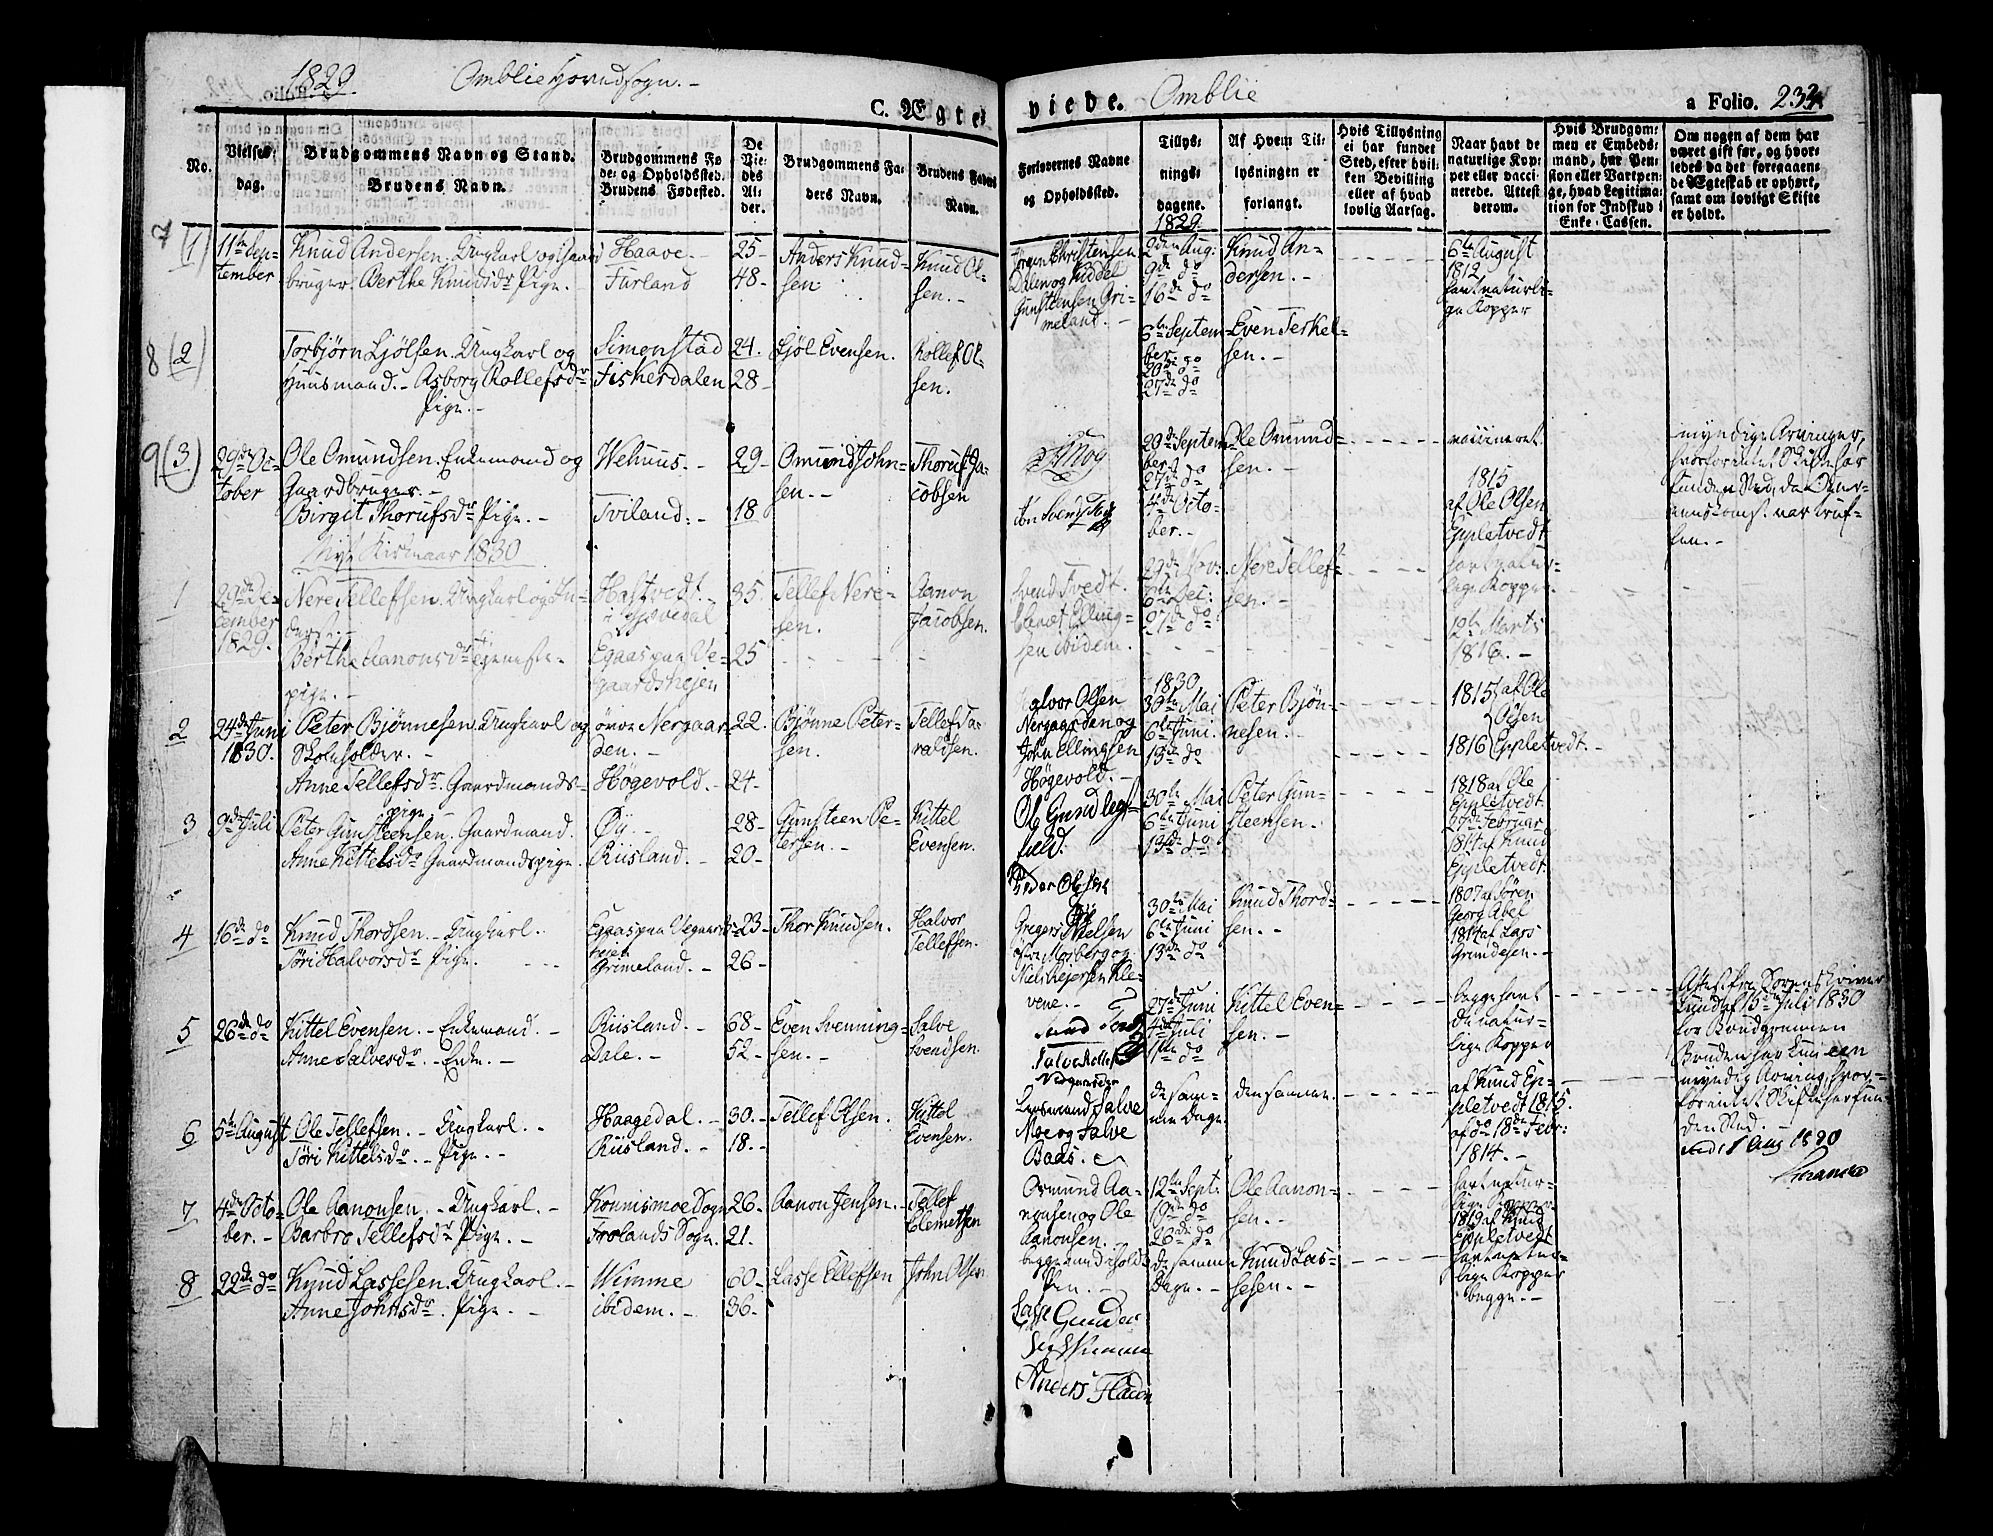 1829
Omblie Hovedsogn.-
C. Ægte
viede.
Omblie
a Folio. 233
No.
Vielses-
dag.
Brudgommens Navn og Stand.
Brudens Navn.
Brudgommens Fø
de- og Opholdssted.
Brudens Fødested.
De
Vie-
des
Al-
der.
Brudgommens Fa-
ders Navn.
Brudens Faders
Navn.
Forlovernes Navne
og Opholdssted.
Tillys-
nings-
dagene.
1829
Af Hvem Til-
lysningen er
forlangt.
Hvis Tillysning
ei har fundet
Sted, efter hvil-
ken Bevilling
eller af hvad
lovlig Aarsag.
Naar havt de
naturlige Kop-
per eller vacci-
nerede. Attest
derom.
Hvis Brudgom-
men er Embeds-
mand, har Pen-
sion eller Vartpen-
ge, hvad Legitima-
tion for Indskud i
Enke-Cassen.
Om nogen af dem har
været gift før, og hvor-
ledes da det foregaaen-
de Ægteskab er ophørt,
samt om lovligt Skifte
er holdt.
7 (1)
11te Sep-
tember
Knud Andersen. Ungkarl og Gaard
bruger. Berthe Knudsdr Pige.-
Haave.-
Furland
25-
48-
Anders Knud-
sen
Knud Ol-
sen.-
Jørgen Christensen
Dalen og Kiddel
Gunsteensen Gri-
meland.-
2den Aug:
9de do
16de do
Knud An-
dersen.-
6te August
1812
havt naturli-
ge Kopper
8 (2)
Torbjørn Ljølsen. Ungkarl og
Huusmand.- Asborg Rollefsdr
Pige.-
Simonstad
Fiskerdalen
24.
28-
Ljøl Evensen.
Rollef Ol-
sen.
6te Septem-
ber:
20de do
27de do
Even Terkel-
sen.-
9 (3)
29de Oc-
tober
Ole Omundsen. Enkemand og
Gaardbruger.-
Birgit Thorufsdr Pige.-
Wehuus.-
Tviland.-
29-
18-
Omund John-
sen.-
Thoruf Ja-
cobsen
20de Septem-
ber
27de do
4de Octo-
ber.-
Ole Omund-
sen.-
vaccineret.
1815
af Ole Olsen
Eppletvedt
myndige Arvinger,
Nyt Kirkeaar 1830
1
29de De-
cember
1829.
Nere Tellefsen. Ungkarl og In-
derst.-
Berthe Aanonsdr Tjeneste-
pige.-
Hastvedt
Egaas paa Ve-
gaardshejen
35.
25
Tellef Nere-
sen.
Aanon
Jacobsen.
Svend Tvedt.
sen ibidem.
29de Nov:
6te Dec:
27de do
Nere Tellef-
sen.-
havt natur-
lige Kopper
12te Marts
1816.-
2
24de Juni
1830.
Peter Bjønnesen. Ungkarl og
Skoleholder.-
Anne Tellefsdr. Gaardmands-
pige
øvre Nergaar-
den.-
Høgevold.-
22.
24-
Bjønne Peter-
sen.
Tellef Ta-
raldsen.
Halvor Olsen
Nergaarden og
John Ellingsen
Høgevold.-
1830
30te Mai
6te Juni
13de do
Peter Bjøn-
nesen.-
1815 af Ole
Olsen
1816 Eppletvedt.
3
9de Juli
Peter Gunsteensen. Gaardmand.
Anne Kittelsdr Gaardmandspige.
Øy.-
Riisland.-
28-
20-
Gunsteen Pe-
tersen.-
Kittel
Evensen.
30te Mai
6te Juni
13de do
Peter Gun-
steensen.-
1818 af Ole
Eppletvedt
27de Februar
1814 af Knud
Eppletvedt.
4
16de do
Knud Thordsen.- Ungkarl.
Tøri Halvorsdr Pige.
Egaas paa Vegaars-
hejen
Grimeland.-
23-
26-
Thor Knudsen.
Halvor
Tellefsen.
Gregers Nielsen
30te Mai
6te Juni
13de do
Knud Thord-
sen.-
1807 af Søren
Georg Abel
1814 af Lars
Grundesen.-
5
26de do
Kittel Evensen.- Enkemand.-
Anne Salvesdr.- Enke.-
Riisland.-
Dale.-
68-
52-
Even Svenning-
sen.-
Salve
Svendsen.
27de Juni
4de Juli
11te do
Kittel Even-
sen.-
begge havt
de natur-
lige Kopper
Attest fra Sorenskriver
Lund af 15de Juli 1830
for Brudgommen
Bruden har kun een
myndig Arving, hvor-
for intet Skifte har fun-
den Sted.-
6
5te August
Ole Tellefsen.- Ungkarl.-
Tøri Kittelsdr.- Pige.-
Haagedal.-
Riisland.-
30.-
18.-
Tellef Olsen.
Kittel
Evensen.
Lensmand Salve
Moe og Salve
Baas.
de sam-
me Dage
den samme.
af Knud Ep-
pletvedt 1815.
af do 18de Febr:
1814.-
7
4de Octo-
ber.-
Ole Aanonsen.- Ungkarl.-
Barbro Tellefsdr Pige.-
Konnismoe Sogn
Frolands Sogn.
26-
21.
Aanon Jensen.-
Tellef
Clemetsen
Osmund Aa-
nonsen og Ole
Aanonsen.-
12te Sept:
19de do
26de do
Ole Aanon-
sen.-
havt natur-
lige Kopper
1819 af Knud
Eppletvedt
8
22de do
Knud Lassesen. Ungkarl.-
Anne Johnsdr. Pige.-
Wimme
ibidem.-
60-
36-
Lasse Ellefsen
John Olsen
de samme
Dage.-
Knud Las-
sesen.-
havt natur-
lige Kopper
begge.-